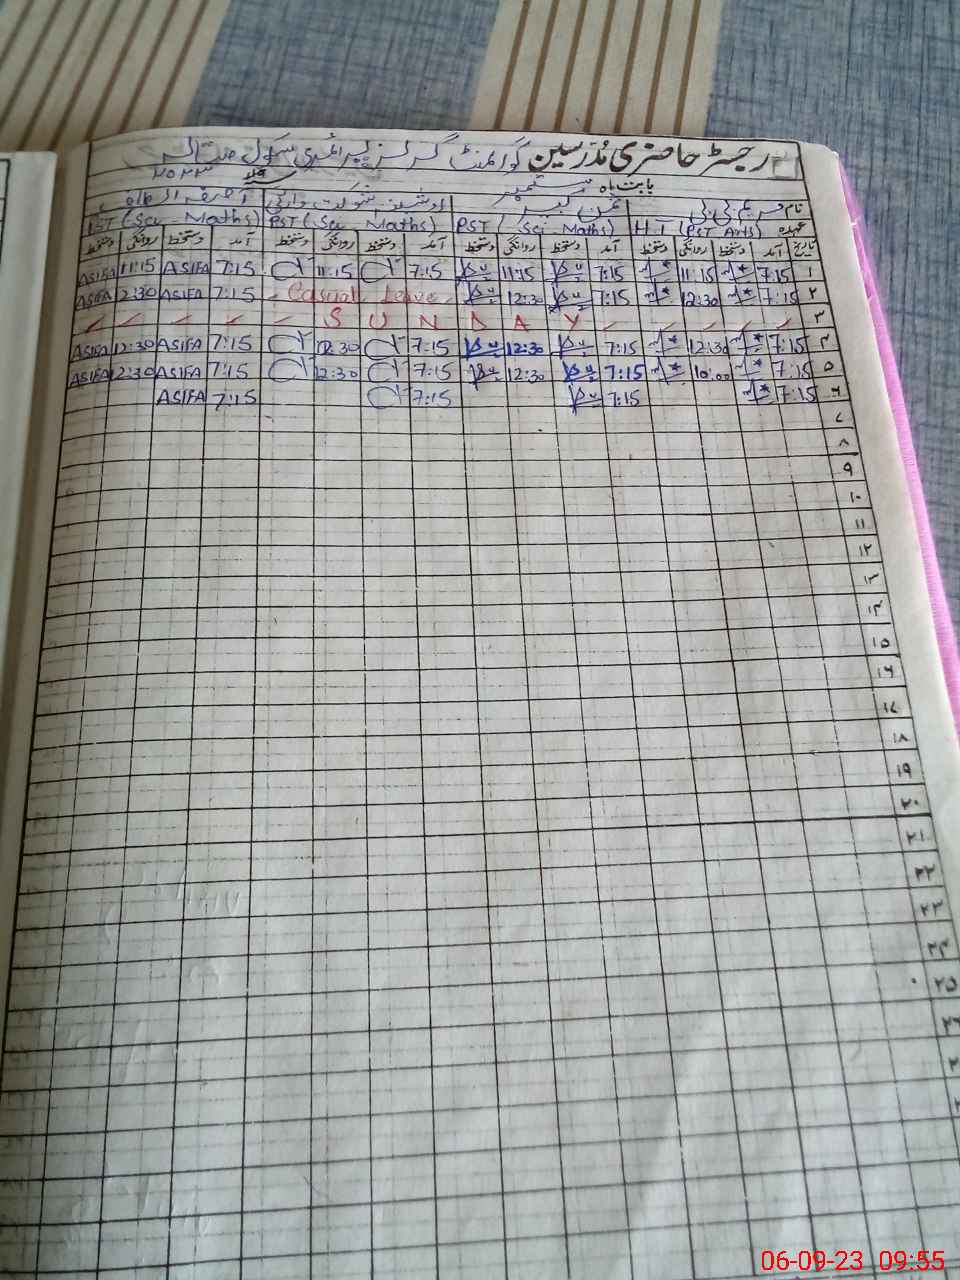 رجسٹر حاضری مدرسین گورنمنٹ گرلز پرائمری سکول
بابت ماہ ستمبر ۲۰۲۳
نام
عہدہ H.T (PST Arts) PST (Sci Maths) PST (Sci Maths) PST (Sci Maths)
تاریخ آمد دستخط روانگی دستخط آمد دستخط روانگی دستخط آمد دستخط روانگی دستخط آمد دستخط روانگی دستخط
۱ 7:15 11:15 7:15 11:15 7:15 11:15 7:15 ASIFA 11:15 ASIFA
۲ 7:15 12:30 7:15 12:30 Casual Leave 7:15 ASIFA 12:30 ASIFA
۳ SUNDAY
۴ 7:15 12:30 7:15 12:30 7:15 12:30 7:15 ASIFA 12:30 ASIFA
۵ 7:15 10:00 7:15 12:30 7:15 12:30 7:15 ASIFA 12:30 ASIFA
۶ 7:15 7:15 7:15 7:15 ASIFA
۷
۸
۹
۱۰
۱۱
۱۲
۱۳
۱۴
۱۵
۱۶
۱۷
۱۸
۱۹
۲۰
۲۱
۲۲
۲۳
۲۴
۲۵
06-09-23 09:55